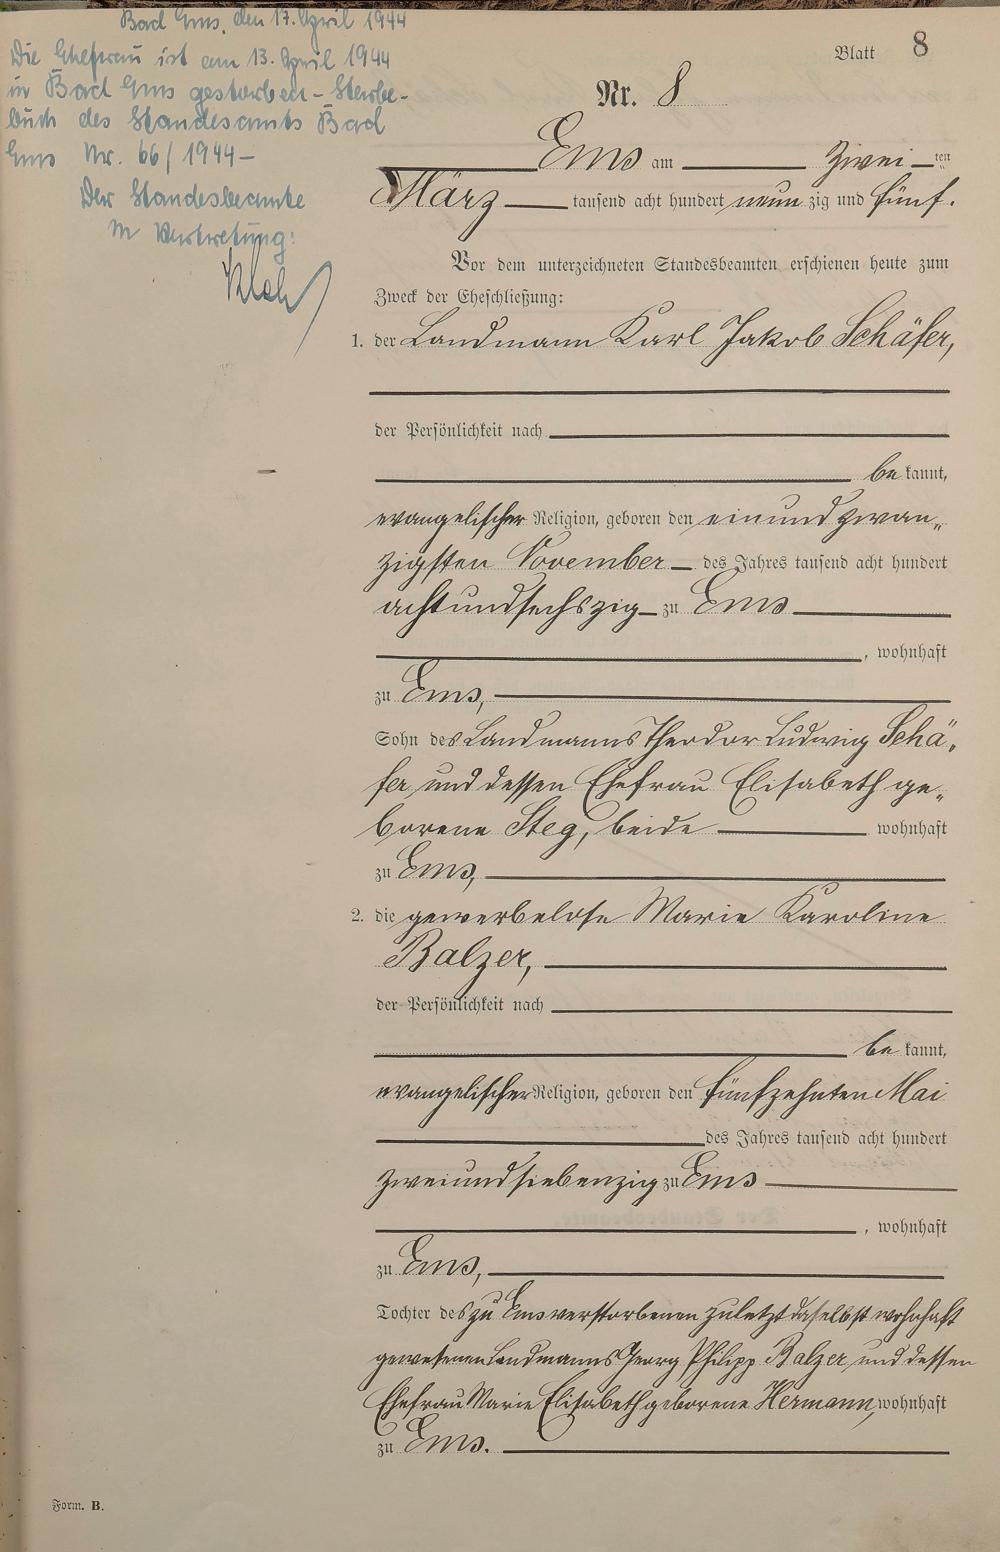 Bad Ems, den 17. April 1944
Die Ehefrau ist am 13. April 1944
in Bad Ems gestorben – Sterbe-
buch des Standesamts Bad
Ems Nr. 66/1944 –
Der Standesbeamte
In Vertretung:
Blatt 8
Nr. 8
Ems am Zwei ten
März tausend acht hundert neun zig und fünf.
Vor dem unterzeichneten Standesbeamten erschienen heute zum
Zweck der Eheschließung:
1. der Landmann Karl Jakob Schäfer,
der Persönlichkeit nach
be kannt,
evangelischer Religion, geboren den einundzwan„
zigsten November des Jahres tausend acht hundert
achtundsechszig zu Ems
, wohnhaft
zu Ems,
Sohn des Landmanns Theodor Ludwig Schä„
fer und dessen Ehefrau Elisabeth ge„
borene Steg, beide wohnhaft
zu Ems,
2. die gewerbelose Marie Karoline
Balzer,
der Persönlichkeit nach
be kannt,
evangelischer Religion, geboren den fünfzehnten Mai
des Jahres tausend acht hundert
zweiundsiebenzig zu Ems
, wohnhaft
zu Ems,
Tochter des zu Ems verstorbenen zuletzt daselbst wohnhaft
gewesenen Landmanns Georg Philipp Balzer und dessen
Ehefrau Marie Elisabeth geborene Hermann, wohnhaft
zu Ems.
Form. B.